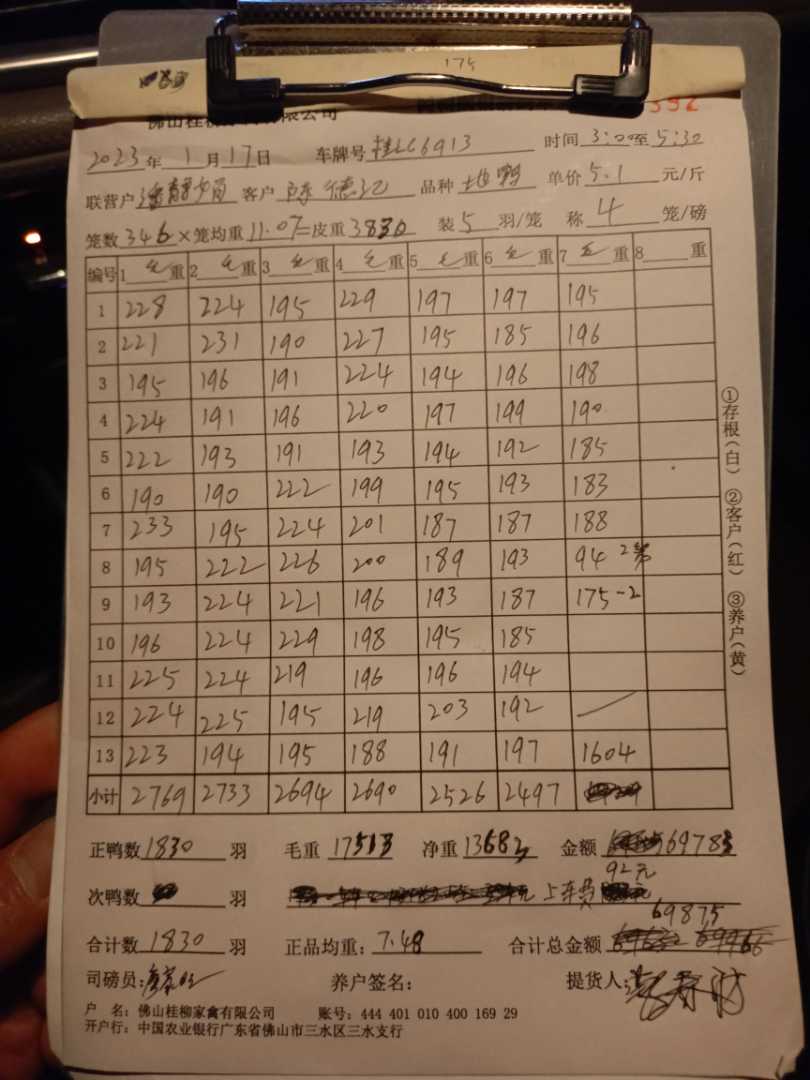 175
佛山桂柳 有限公司
2023年1月17日 车牌号桂LC6913 时间3:00至5:30
联营户 客户 陈德记 品种 地鸭 单价5.1元/斤
笼数346×笼均重11.07=皮重3830 装5羽/笼 称4笼/磅
编号 1毛重 2毛重 3毛重 4毛重 5毛重 6毛重 7毛重 8重
1 228 224 195 229 197 197 195
2 221 231 190 227 195 185 196
3 195 196 191 224 194 196 198
4 224 191 196 220 197 199 190
5 222 193 191 193 194 192 185
6 190 190 222 199 195 193 183
7 233 195 224 201 187 187 188
8 195 222 226 200 189 193 94 2笼
9 193 224 221 196 193 187 175-2
10 196 224 229 198 195 185
11 225 224 219 196 196 194
12 224 225 195 219 203 192
13 223 194 195 188 191 197 1604
小计 2769 2733 2694 2690 2526 2497
①存根(白) ②客户(红) ③养户(黄)
正鸭数1830羽 毛重17513 净重13683 金额69783
92元
次鸭数 羽 上车费
69875
合计数1830羽 正品均重:7.48 合计总金额
司磅员: 养户签名: 提货人:
户 名:佛山桂柳家禽有限公司 账号:444 401 010 400 169 29
开户行:中国农业银行广东省佛山市三水区三水支行